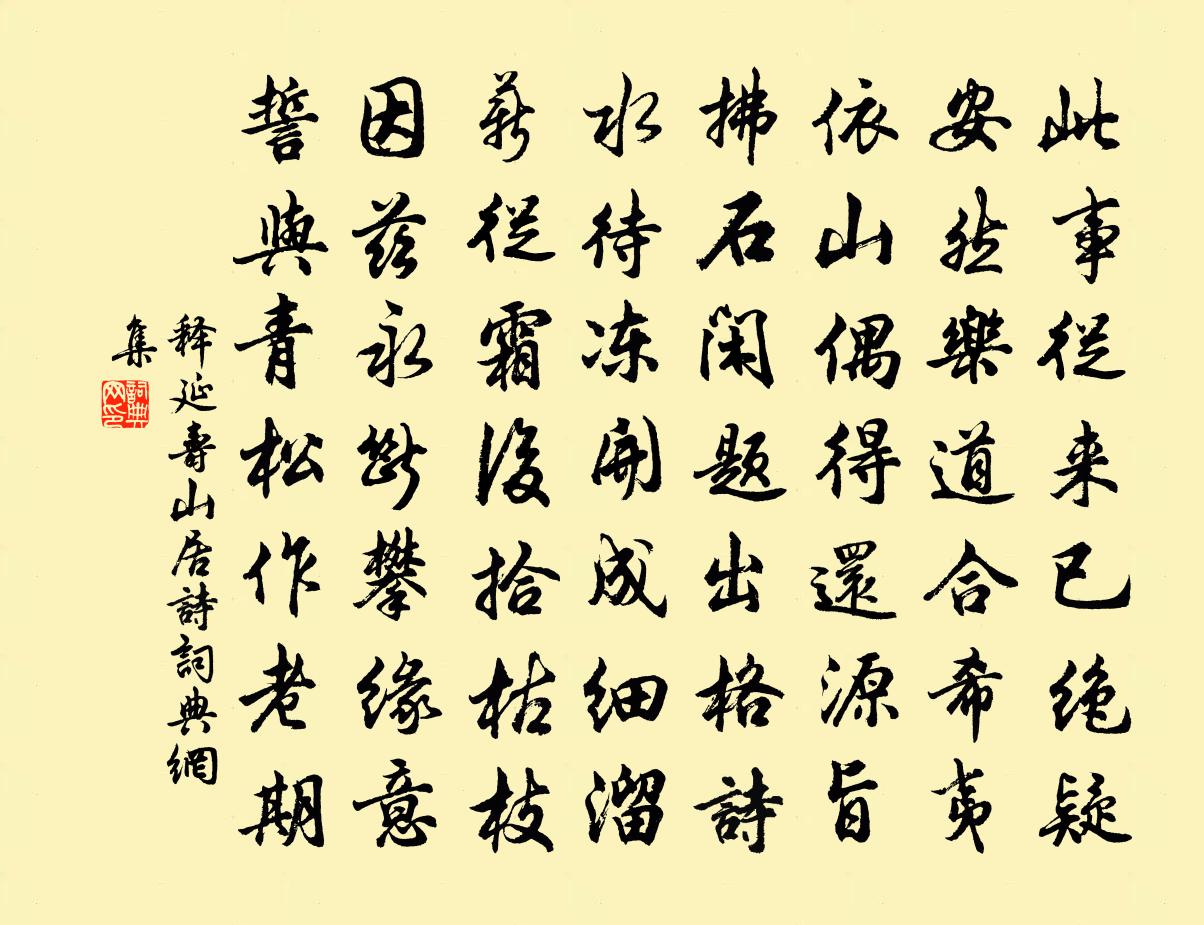 此事從来已绝疑
安然樂道合希夷
依山偶得還源旨
拂石闲題出格詩
水待冻開成细溜
薪從霜後拾枯枝
因兹永斷攀缘意
誓與青松作老期
释延壽山居詩詞典網
集
詞典
网印